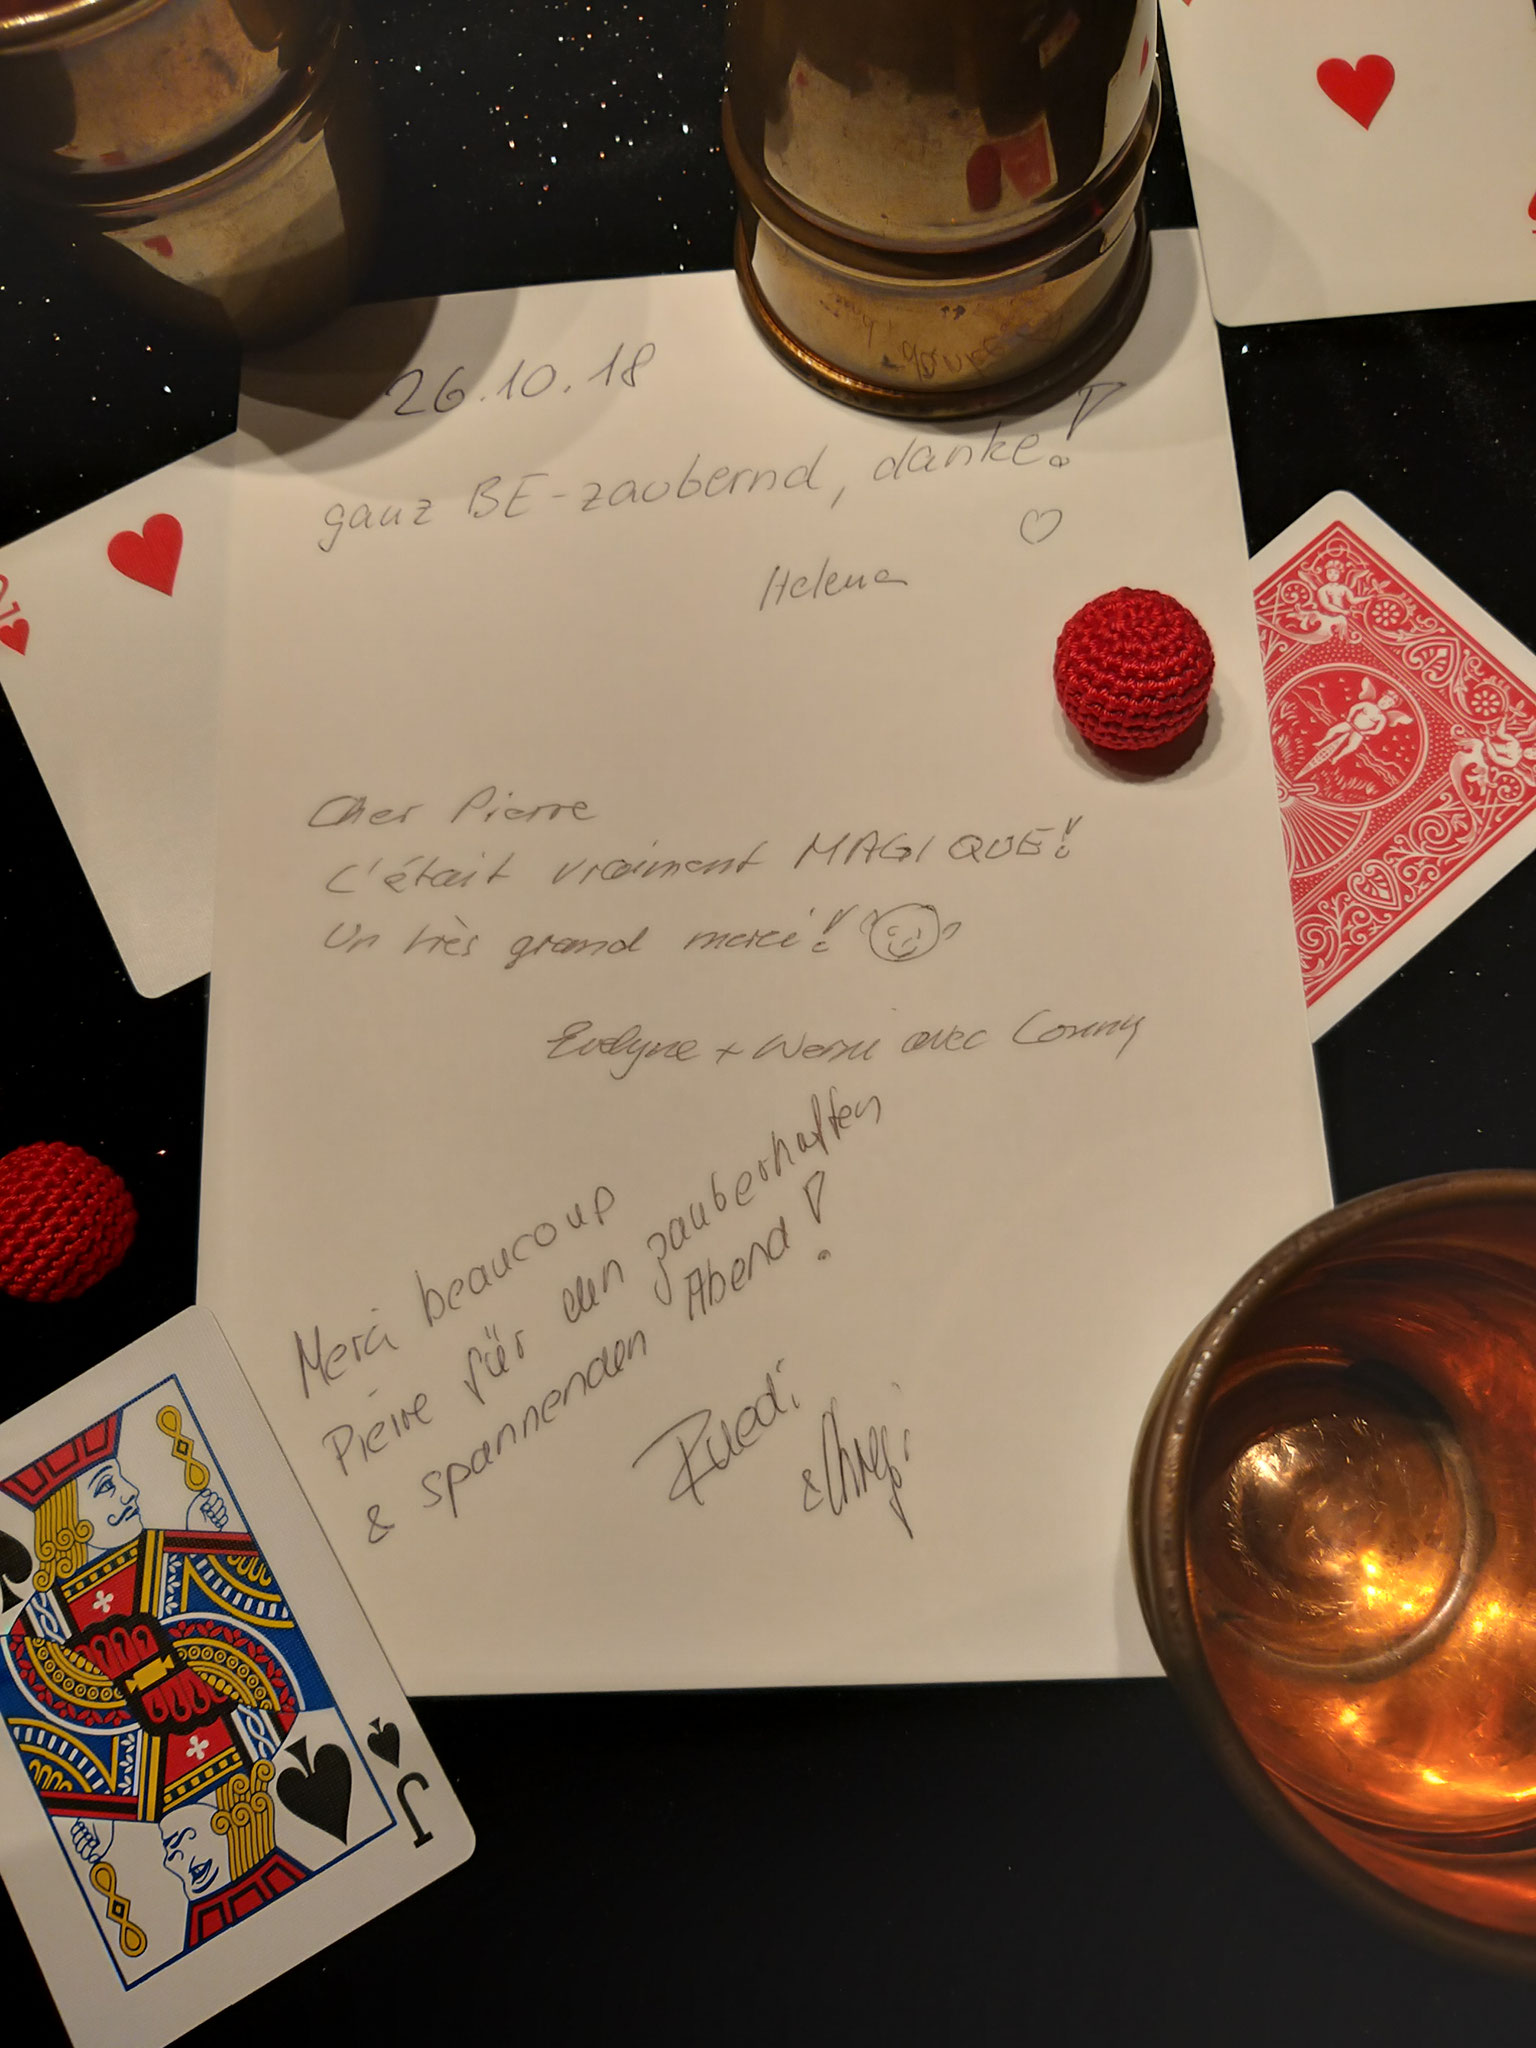 26.10.18
ganz BE-zaubernd, danke!
Helena
Cher Pierre
C'était vraiment MAGIQUE!
Un très grand merci!
Evelyne + Werni avec Conny
Merci beaucoup
Pierre für den zauberhaften
& spannenden Abend!
Ruedi
&
10
J